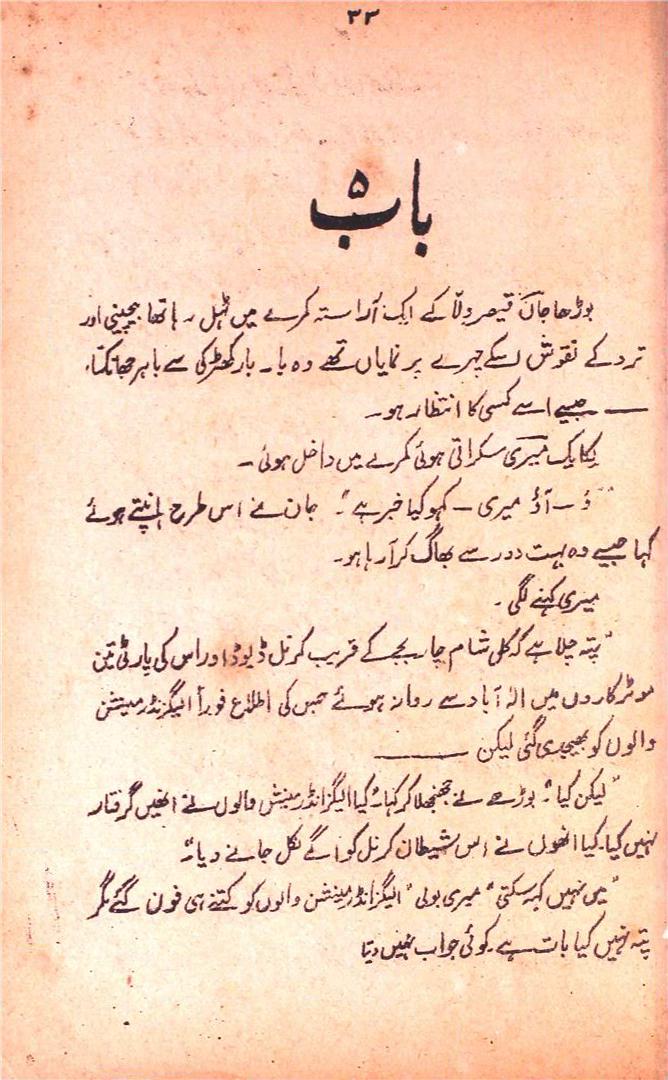 ۳۳
باب ۵
بوڑھا جان قیصر ولا کے ایک آراستہ کمرے میں ٹہل رہا تھا بیچینی اور
تردد کے نقوش اسکے چہرے پر نمایاں تھے وہ بار بار کھڑکی سے باہر جھانکتا،
— جیسے اسے کسی کا انتظار ہو۔
یکایک میری مسکراتی ہوئی کمرے میں داخل ہوئی۔
ؤ ۔ آؤ میری ۔ کہو کیا خبر ہے"۔ جان نے اس طرح ہانپتے ہوئے
کہا جیسے وہ بہت دور سے بھاگ کر آ رہا ہو۔
میری کہنے لگی۔
"پتہ چلا ہے کہ کل شام چار بجے کے قریب کرنل ڈیوڈ اور اس کی پارٹی تین
موٹر کاروں میں الہ آباد سے روانہ ہوئے جس کی اطلاع فوراً الیگزنڈر مینشن
والوں کو بھیجدی گئی لیکن ———
"لیکن کیا"۔ بوڑھے نے جھنجھلا کر کہا۔ "کیا الیگزانڈر مینشن والوں نے انھیں گرفتار
نہیں کیا۔ کیا انھوں نے اس شیطان کرنل کو آگے نکل جانے دیا"۔
"میں نہیں کہہ سکتی" میری بولی "الیگزانڈر مینشن والوں کو کتنے ہی فون کئے گئے مگر
پتہ نہیں کیا بات ہے۔ کوئی جواب نہیں دیتا